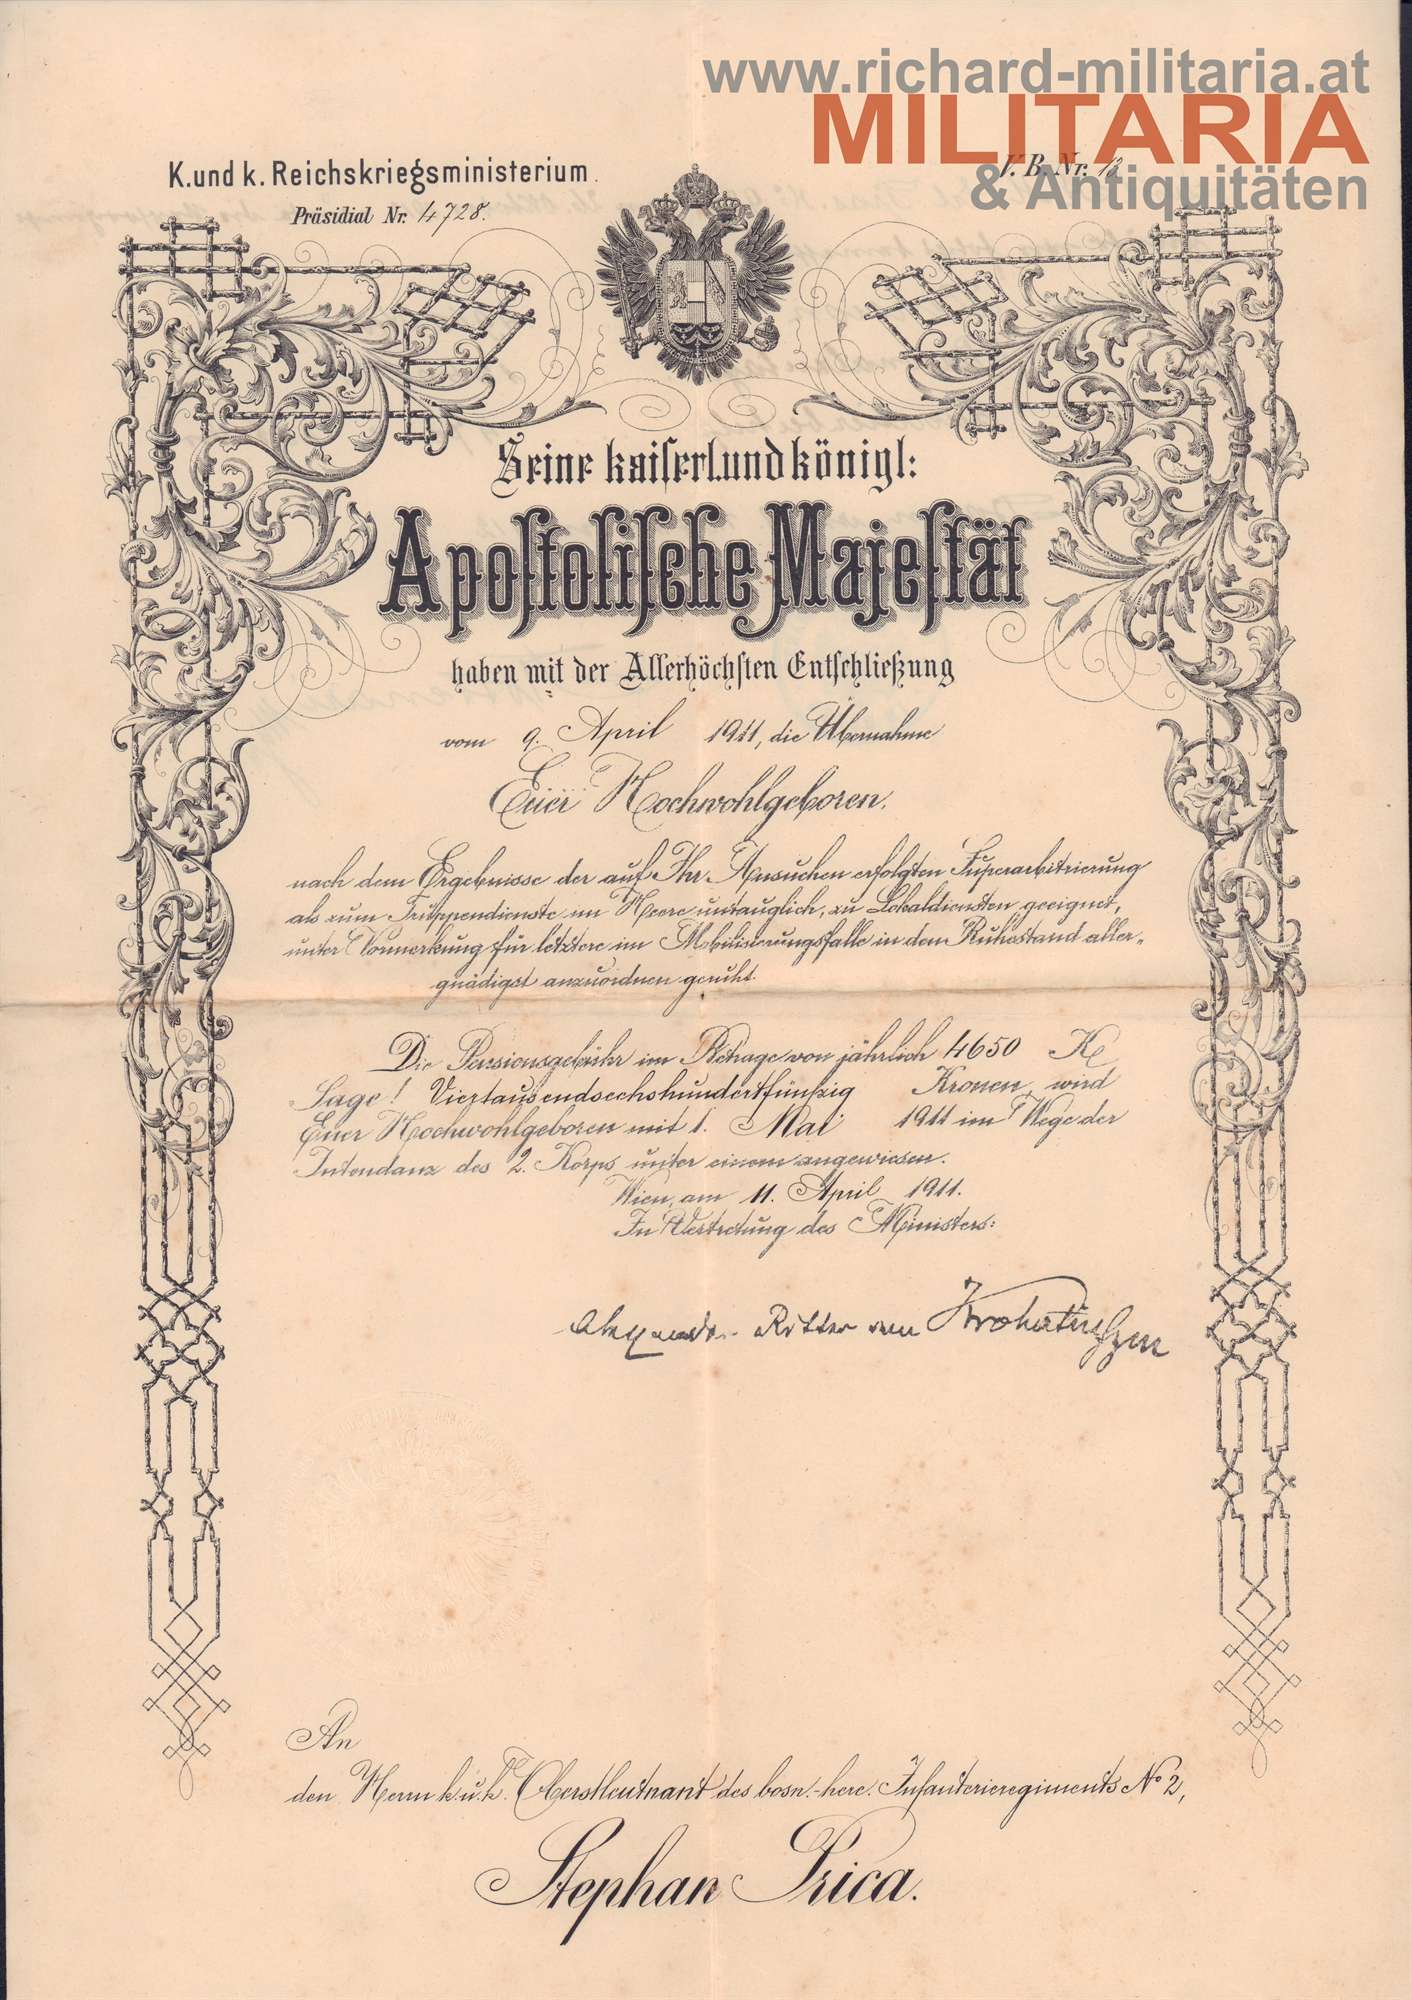 www.richard-militaria.at
MILITARIA
& Antiquitäten
K. und k. Reichskriegsministerium.
V. B. Nr. 13
Präsidial Nr. 4728.
Seine kaiserl. und königl:
Apostolische Majestät
haben mit der Allerhöchsten Entschließung
vom 9. April 1911, die Übernahme
Euer Hochwohlgeboren.
nach dem Ergebnisse der auf Ihr Ansuchen erfolgten Superarbitrierung
als zum Truppendienste im Heere untauglich, zu Lokaldiensten geeignet,
unter Vormerkung für letztere im Mobilisierungsfalle in den Ruhestand aller-
gnädigst anzuordnen geruht.
Die Pensionsgebühr im Betrage von jährlich 4650 K
Sage! Viertausendsechshundertfünfzig Kronen, wird
Euer Hochwohlgeboren mit 1. Mai 1911 im Wege der
Intendanz des 2. Korps unter einem angewiesen.
Wien, am 11. April 1911.
In Vertretung des Ministers:
Alexander Ritter von Krobatin
An
den Herrn k. u. k. Oberstleutnant des bosn.-herc. Infanterieregiments No 2,
Stephan Prica.